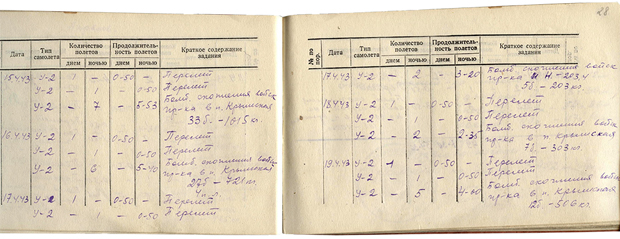 Дата Тип самолета Количество полетов Продолжительность полетов Краткое содержание задания
днем ночью днем ночью
15.4.43 У-2 1 - 0-50 - Перелет
У-2 - 1 - 0-50 Перелет
У-2 - 7 - 5-53 Бомб. скопления войск
пр-ка в п. Крымская
33б - 1015 кг.
16.4.43 У-2 1 - 0-50 - Перелет
У-2 - 1 - 0-50 Перелет
У-2 - 6 - 5-40 Бомб. скопления войск
пр-ка в п. Крымская
17.4.43 У-2 1 - 0-50 - Перелет
У-2 - 1 - 0-50 Перелет
28
№ по пор. Дата Тип самолета Количество полетов Продолжительность полетов Краткое содержание задания
днем ночью днем ночью
17.4.43 У-2 - 2 - 3-20 Бомб. скопления войск
пр-ка
5б - 203 кг.
18.4.43 У-2 1 - 0-50 - Перелет
У-2 - 1 - 0-50 Перелет
У-2 - 2 - Бомб. скопления войск
пр-ка в п. Крымская
- 303 кг.
19.4.43 У-2 1 - 0-50 - Перелет
У-2 - 1 - 0-50 Перелет
У-2 - 5 - Бомб. скопления войск
пр-ка в п. Крымская
- 506 кг.